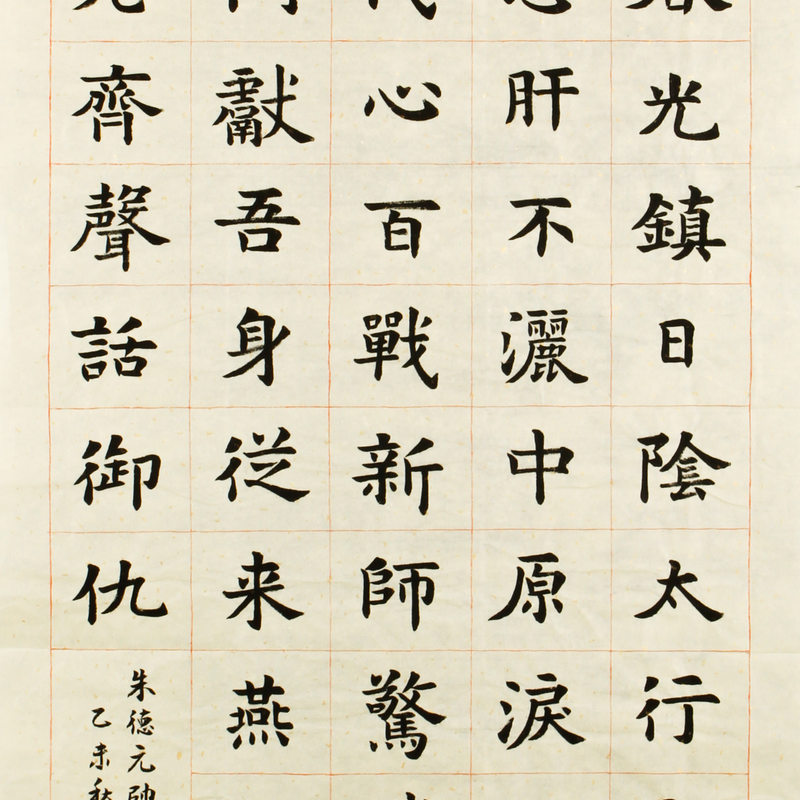 光鎮日陰太行
肝不灑中原淚
心百戰新師驚
獻吾身従来燕
齊聲話御仇
朱德元帥
乙未秋